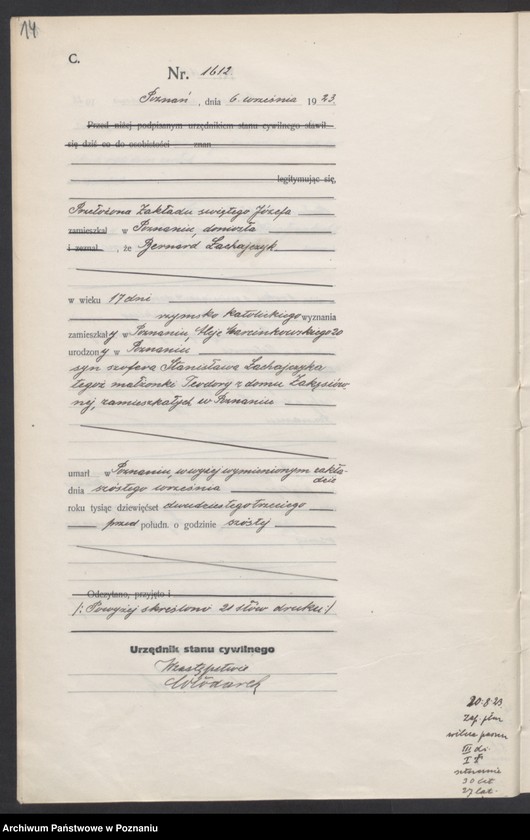 14
C.
Nr. 1612
Poznań, dnia 6 września 1923.
Przed niżej podpisanym urzędnikiem stanu cywilnego stawił
się dziś co do osobistości znan
legitymując się,
Przełożona Zakładu świętego Józefa
zamieszkał w Poznaniu, doniosła
i zeznał , że Bernard Lachajczyk
w wieku 17 dni
rzymsko katolickiego wyznania
zamieszkały w Poznaniu, Aleje Marcinkowskiego 20
urodzony w Poznaniu
syn szofera Stanisława Lachajczyka
tegoż małżonki Teodory z domu
nej, zamieszkałych w Poznaniu
umarł w Poznaniu, w wyżej wymienionym zakła-
dzie
dnia szóstego września
roku tysiąc dziewięćset dwudziestego trzeciego
przed połudn. o godzinie szóstej
Odczytano, przyjęto i
/: Powyżej skreślono 21 słów druku :/
Urzędnik stanu cywilnego
W zastępstwie
Włodarek
20.8.23.
III dz.
30 lat
27 lat.
Archiwum Państwowe w Poznaniu